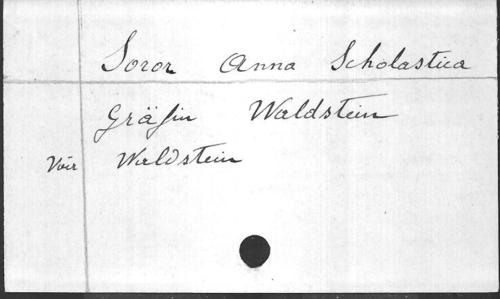 Soror Anna Scholastica
Gräfin Waldstein
Voir Waldstein